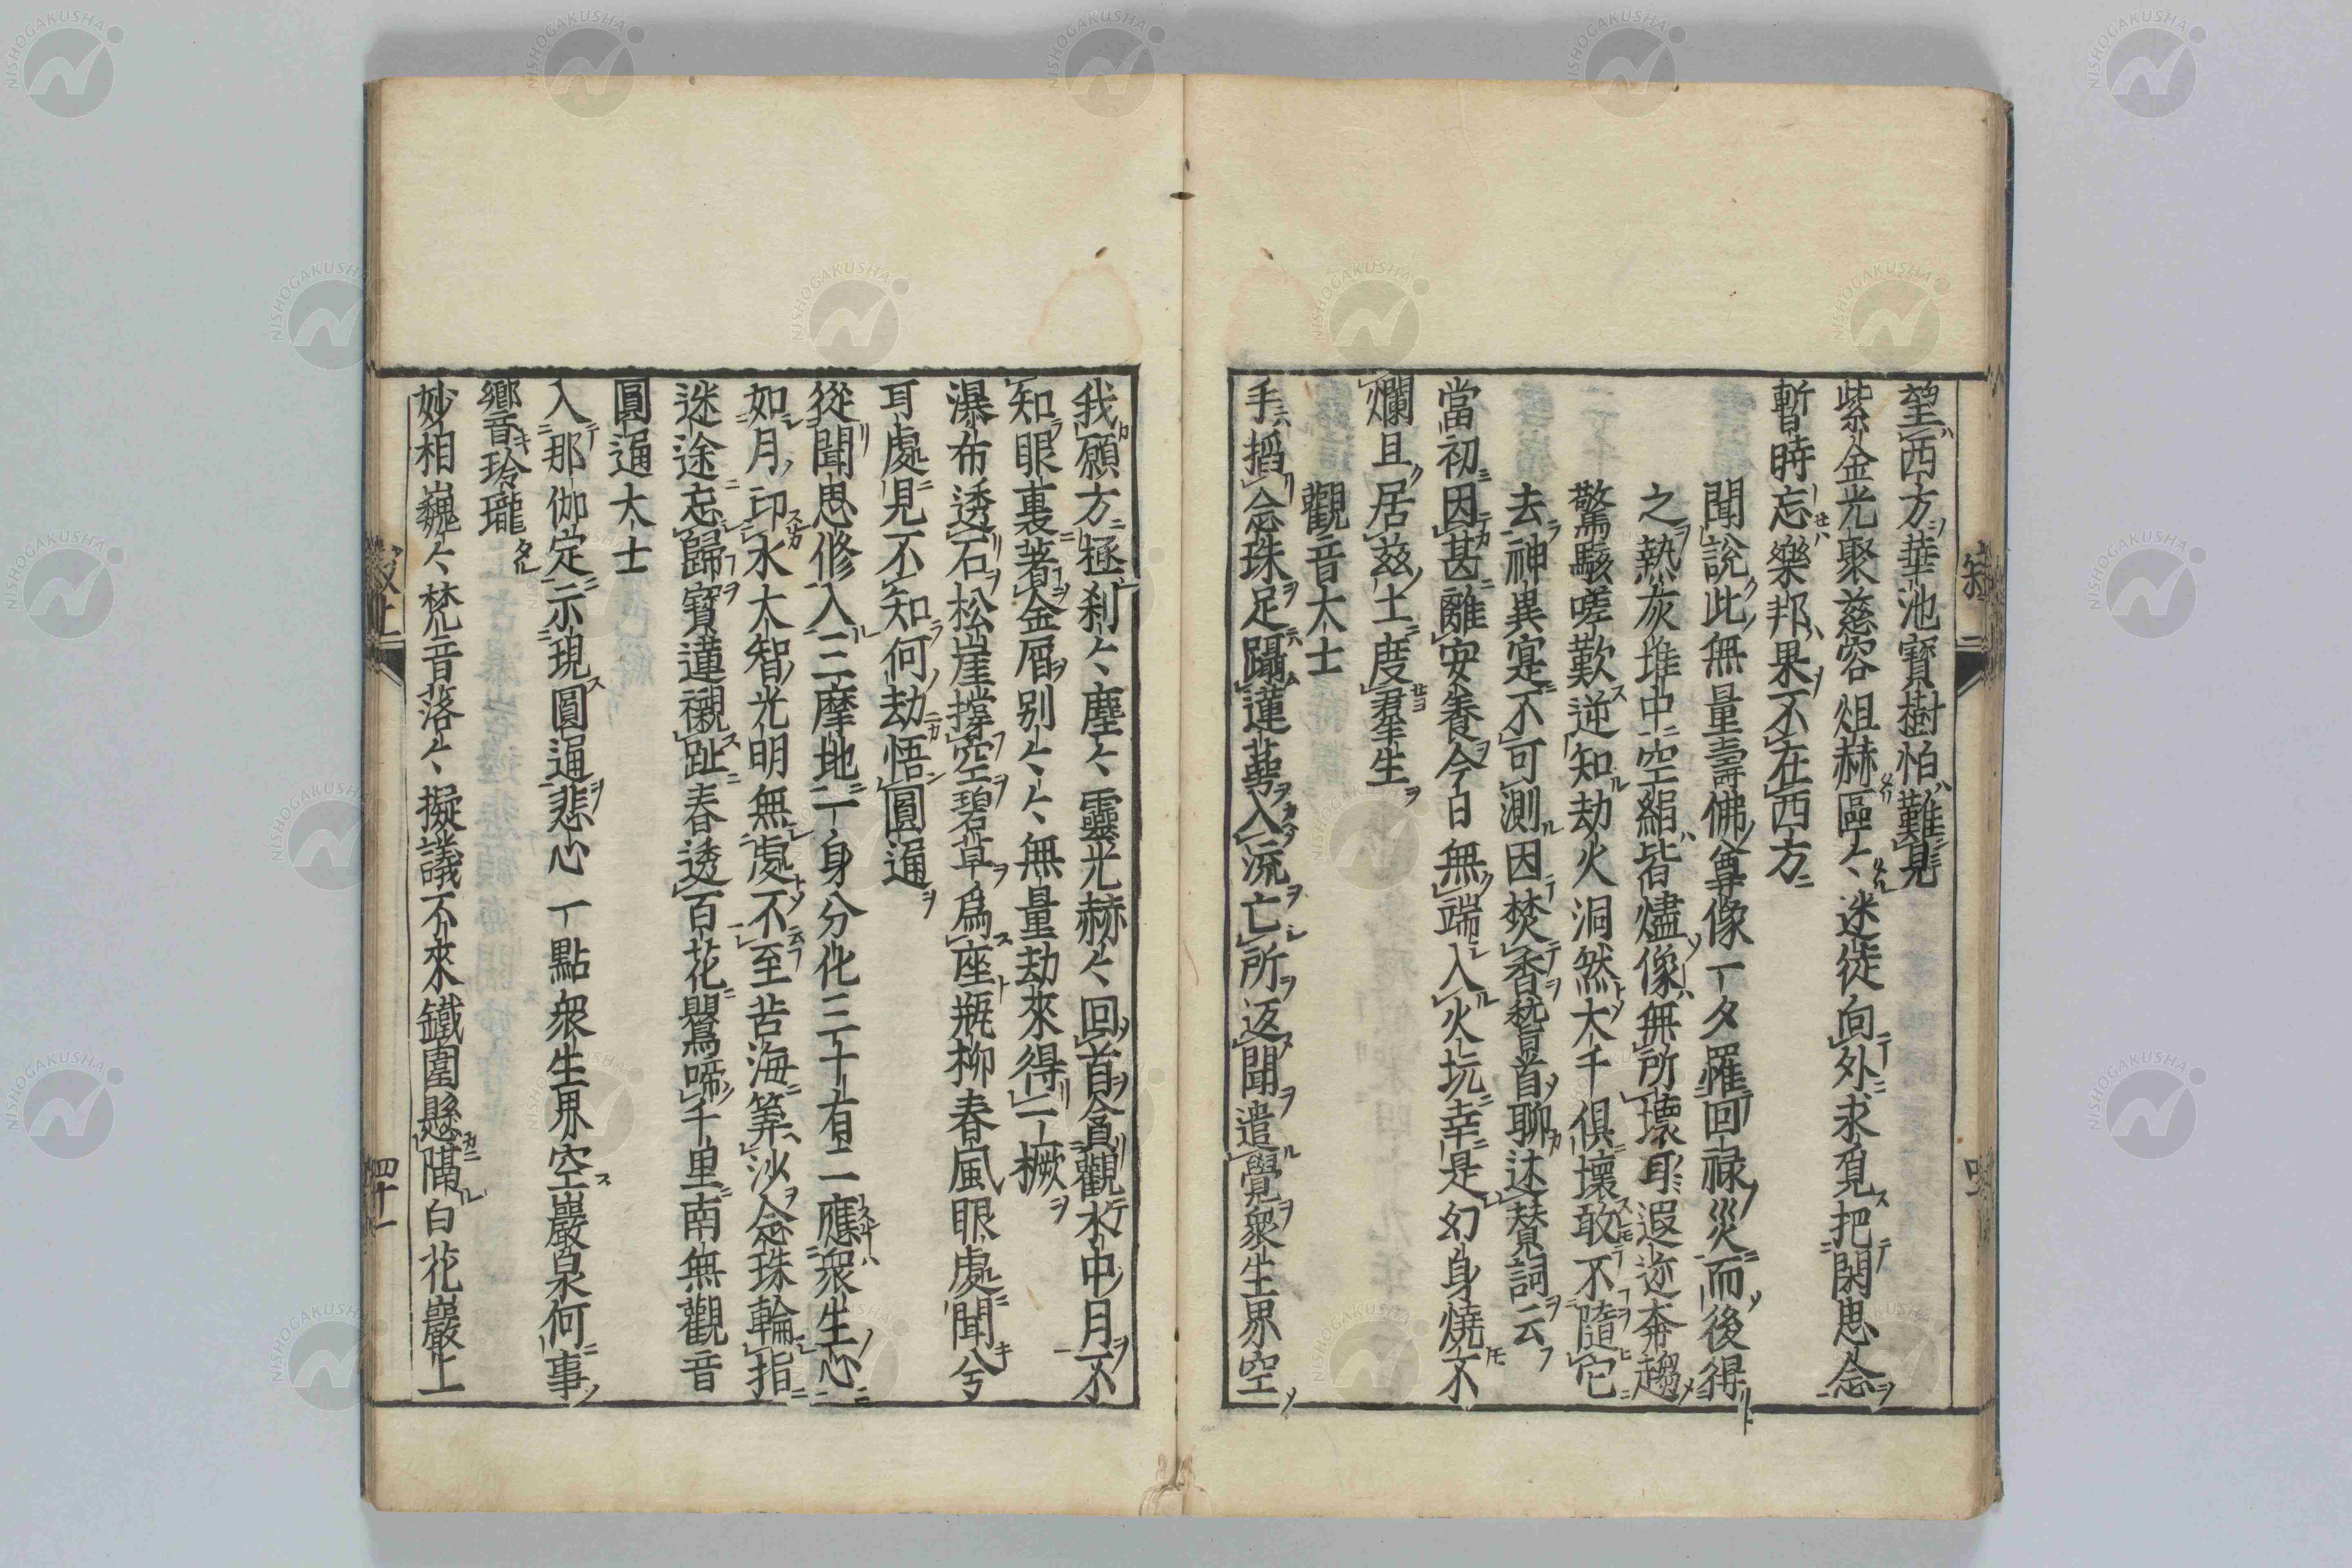 望西方華池寶樹怕難見
紫金光聚慈容爼赫區〻迷徒向外求覓把閑思念
暫時忘樂邦果不在西方
聞說此無量壽佛尊像一夕罹回祿災而後得
之熱灰堆中空絹皆燼像無所壞耶遐迩奔趨
驚駭嗟歎逆知劫火洞然大千俱壞敢不隨它
去神異寔不可測因焚香稽首聊述賛詞云
當初因甚離安養今日無端入火坑幸是幻身燒不
爛且居茲土度群生
觀音大士
手搯念珠足躡蓮萼入流亡所返聞遣覺衆生界空
我願方極刹〻塵〻靈光赫〻回首貪觀水中月不
知眼裏著金屑別〻〻無量劫來得一橛
瀑布透石松崖撐空碧草爲座瓶柳春風眼處聞兮
耳處見不知何劫悟圓通
從聞思修入三摩地一身分化三十有二應衆生心
如月印水大智光明無處不至苦海筭沙念珠輪指
迷途忘歸寶蓮襯趾春透百花鸎啼千里南無觀音
圓通大士
入那伽定示現圓通悲心一點衆生界空巖泉何事
響玲瓏
妙相巍〻梵音落〻擬議不來鐵圍懸隔白花巖上
四十一
NISHOGAKUSHA